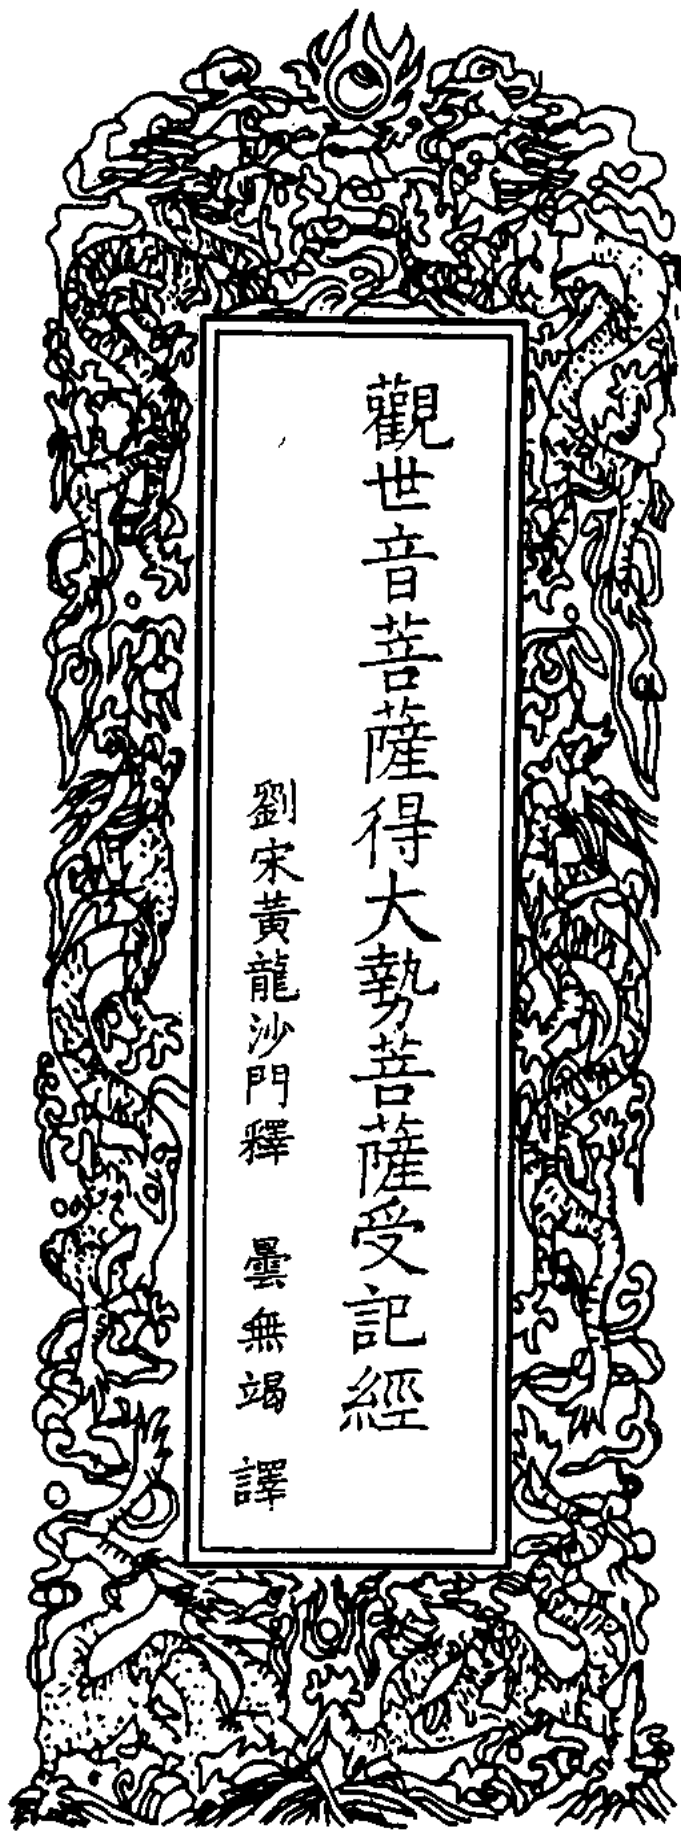 觀世音菩薩得大勢菩薩受記經
劉宋黃龍沙門釋　曇無竭　譯